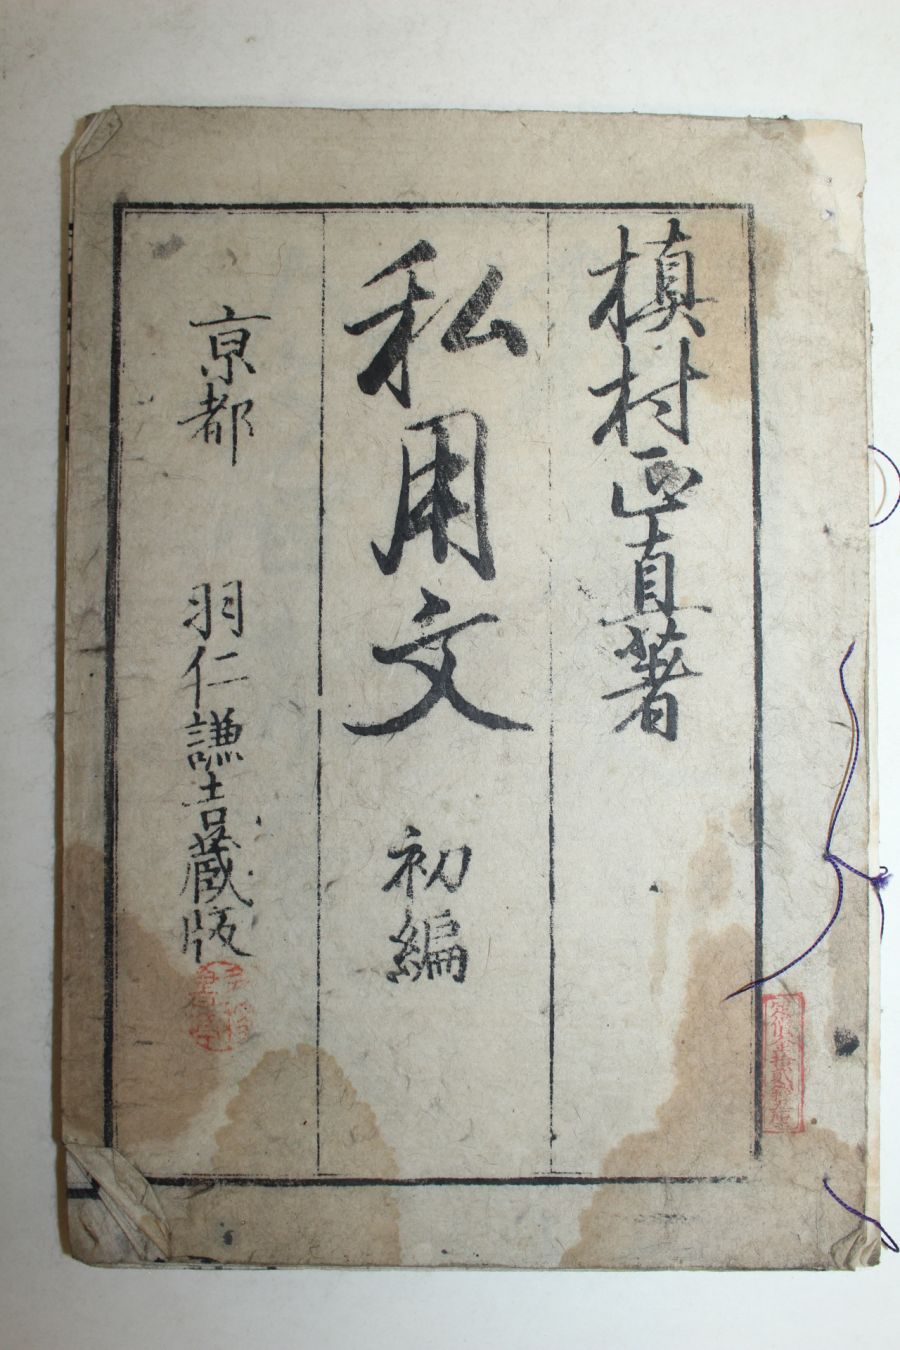 槙村正直著
私用文 初編
京都 羽仁謙吉蔵版